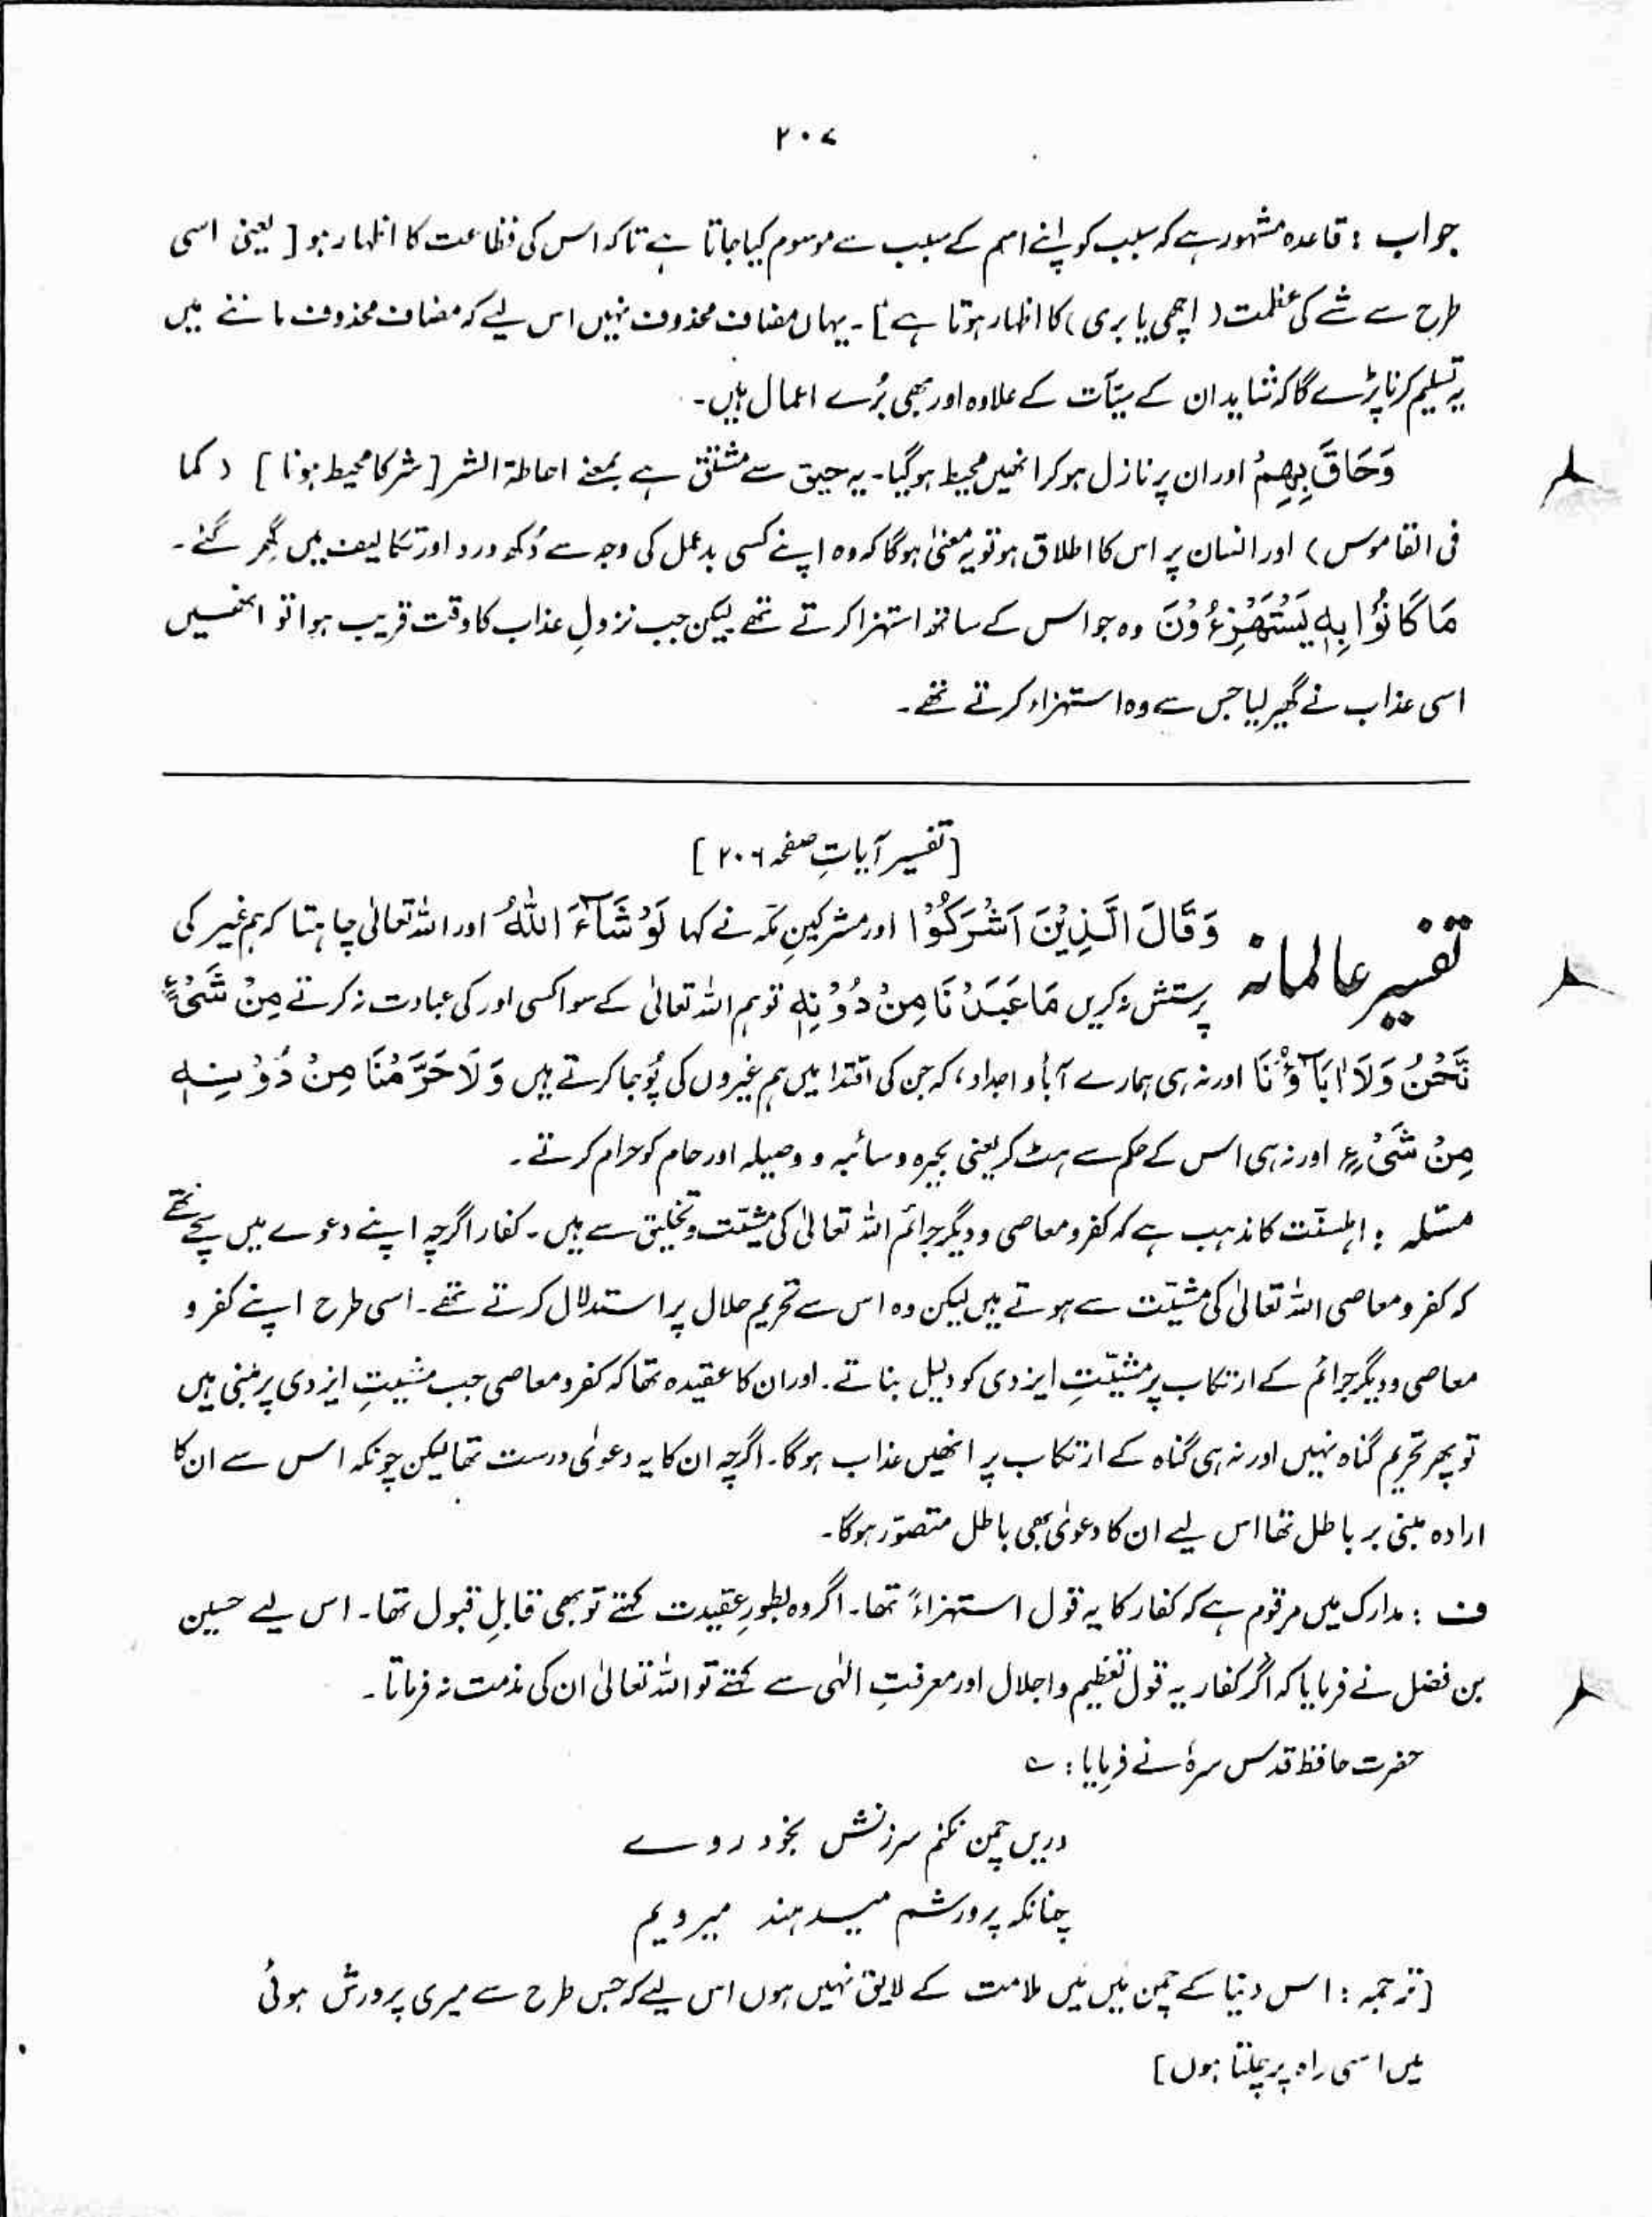 ۲۰۷
جواب : قاعدہ مشہور ہے کہ سبب کو اپنے اسم کے سبب سے موسوم کیا جاتا ہے تاکہ اس کی فظاعت کا اظہار ہو [ یعنی اسی
طرح سے شے کی عظمت ( اچھی یا بری ) کا اظہار ہوتا ہے ] ۔ یہاں مضاف محذوف نہیں اس لیے کہ مضاف محذوف ماننے میں
یہ تسلیم کرنا پڑے گا کہ شاید ان کے سیّآت کے علاوہ اور بھی بُرے اعمال ہیں۔
وَحَاقَ بِهِمْ اور ان پر نازل ہو کر انھیں محیط ہو گیا۔ یہ حیق سے مشتق ہے بمعنے احاطۃ الشر [ شر کا محیط ہونا ] ( کما
فی القاموس ) اور انسان پر اس کا اطلاق ہو تو یہ معنیٰ ہو گا کہ وہ اپنے کسی بد عمل کی وجہ سے دُکھ درد اور تکالیف میں گِھر گئے۔
مَا كَانُوْا بِهٖ يَسْتَهْزِءُوْنَ وہ جو اس کے ساتھ استہزا کرتے تھے لیکن جب نزولِ عذاب کا وقت قریب ہوا تو انھیں
اسی عذاب نے گھیر لیا جس سے وہ استہزاء کرتے تھے۔
[ تفسیر آیاتِ صفحہ ۲۰۶ ]
تفسیر عالمانہ وَقَالَ الَّذِيْنَ اَشْرَكُوْا اور مشرکینِ مکہ نے کہا لَوْ شَآءَ اللّٰهُ اور اللہ تعالیٰ چاہتا کہ ہم غیر کی
پرستش نہ کریں مَا عَبَدْنَا مِنْ دُوْنِهٖ تو ہم اللہ تعالیٰ کے سوا کسی اور کی عبادت نہ کرتے مِنْ شَیْءٍ
نَّحْنُ وَلَاۤ اٰبَآؤُنَا اور نہ ہی ہمارے آباؤ اجداد، کہ جن کی اقتدا میں ہم غیروں کی پُوجا کرتے ہیں وَلَا حَرَّمْنَا مِنْ دُوْنِهٖ
مِنْ شَیْءٍ اور نہ ہی اس کے حکم سے ہٹ کر یعنی بحیرہ و سائبہ و وصیلہ اور حام کو حرام کرتے۔
مسئلہ : اہلسنّت کا مذہب ہے کہ کفر و معاصی و دیگر جرائم اللہ تعالیٰ کی مشیّت و تخلیق سے ہیں۔ کفار اگرچہ اپنے دعوے میں سچے تھے
کہ کفر و معاصی اللہ تعالیٰ کی مشیّت سے ہوتے ہیں لیکن وہ اس سے تحریم حلال پر استدلال کرتے تھے۔ اسی طرح اپنے کفر و
معاصی و دیگر جرائم کے ارتکاب پر مشیّتِ ایزدی کو دلیل بناتے۔ اور ان کا عقیدہ تھا کہ کفر و معاصی جب مشیّتِ ایزدی پر مبنی ہیں
تو پھر تحریم گناہ نہیں اور نہ ہی گناہ کے ارتکاب پر انھیں عذاب ہو گا۔ اگرچہ ان کا یہ دعوٰی درست تھا لیکن چونکہ اس سے ان کا
ارادہ مبنی بر باطل تھا اس لیے ان کا دعوٰی بھی باطل متصوّر ہو گا۔
ف : مدارک میں مرقوم ہے کہ کفار کا یہ قول استہزاءً تھا۔ اگر وہ بطورِ عقیدت کہتے تو بھی قابلِ قبول تھا۔ اس لیے حسین
بن فضل نے فرمایا کہ اگر کفار یہ قول تعظیم و اجلال اور معرفتِ الٰہی سے کہتے تو اللہ تعالیٰ ان کی مذمت نہ فرماتا۔
حضرت حافظ قدس سرہٗ نے فرمایا : ؎
دریں چمن نکنم سرزنش بخود روے
چنانکہ پرورشم میدہند میرویم
[ ترجمہ : اس دنیا کے چمن میں مَیں ملامت کے لایق نہیں ہوں اس لیے کہ جس طرح سے میری پرورش ہوئی
میں اسی راہ پر چلتا ہوں ]